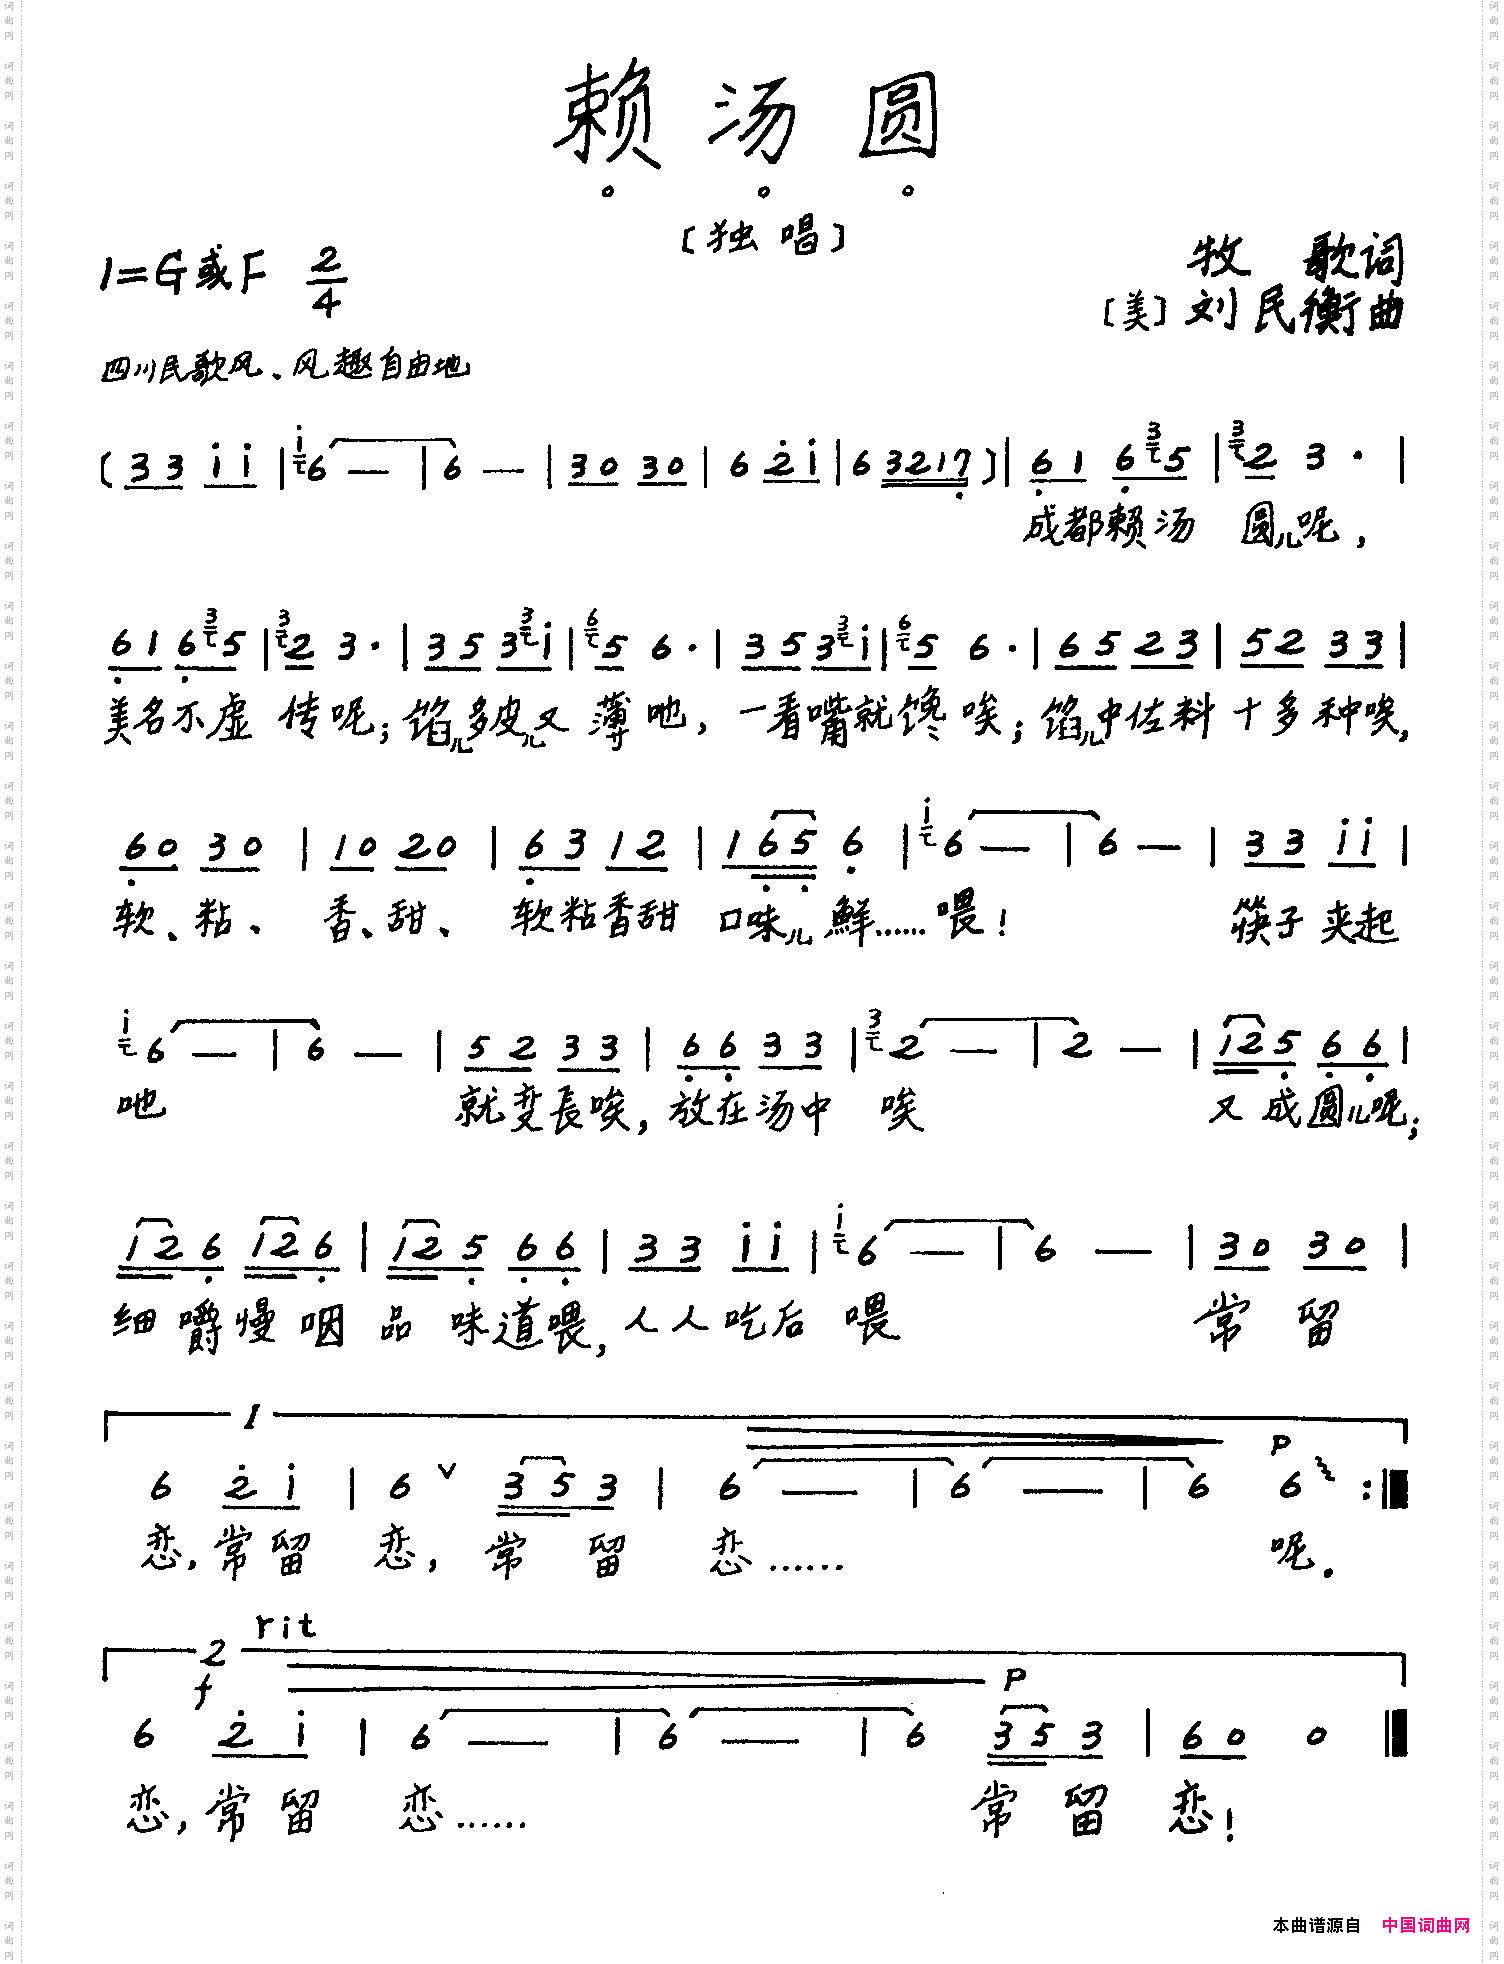 赖汤圆
〔独唱〕
1=G或F 2/4
牧 歌词
〔美〕刘民衡曲
四川民歌风、风趣自由地
(3 3 i i | 6 — | 6 — | 3 0 3 0 | 6 2 i | 6 3 2 1 7) | 6 1 6 5 | 2 3 · |
成都赖汤 圆儿呢，
6 1 6 5 | 2 3 · | 3 5 3 i | 5 6 · | 3 5 3 i | 5 6 · | 6 5 2 3 | 5 2 3 3 |
美名不虚 传呢；馅儿多皮儿又 薄吔，一看嘴就馋唉；馅儿中佐料十多种唉，
6 0 3 0 | 1 0 2 0 | 6 3 1 2 | 1 6 5 6 | 6 — | 6 — | 3 3 i i |
软、粘、香、甜、软粘香甜 口味儿鮮……喂！ 筷子夹起
6 — | 6 — | 5 2 3 3 | 6 6 3 3 | 2 — | 2 — | 1 2 5 6 6 |
吔 就变長唉，放在汤中 唉 又成圆儿呢；
1 2 6 1 2 6 | 1 2 5 6 6 | 3 3 i i | 6 — | 6 — | 3 0 3 0 |
细嚼慢咽 品味道喂，人人吃后 喂 常留
1
p
6 2 i | 6 ∨ 3 5 3 | 6 — | 6 — | 6 6 :‖
恋，常留 恋，常留 恋…… 呢．
2 rit
f p
6 2 i | 6 — | 6 — | 6 3 5 3 | 6 0 0 ‖
恋，常留 恋…… 常留 恋！
本曲谱源自 中国词曲网